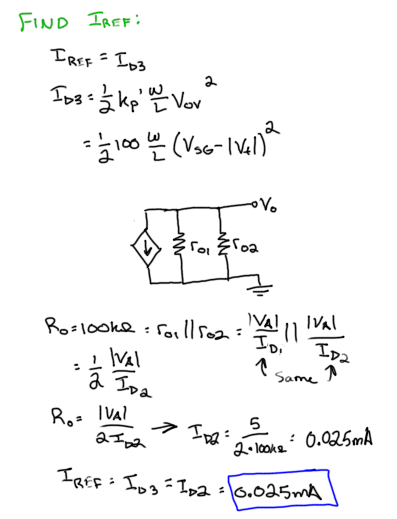 FIND IREF:
I_REF = I_D3
I_D3 = 1/2 kp' W/L Vov²
= 1/2 100 W/L (V_SG - |Vt|)²
Vo
ro1
ro2
Ro = 100kΩ = ro1 || ro2 = |VA|/I_D1 || |VA|/I_D2
= 1/2 |VA|/I_D2
Same
Ro = |VA|/2I_D2 → I_D2 = 5/2·100kΩ = 0.025mA
I_REF = I_D3 = I_D2 = 0.025mA